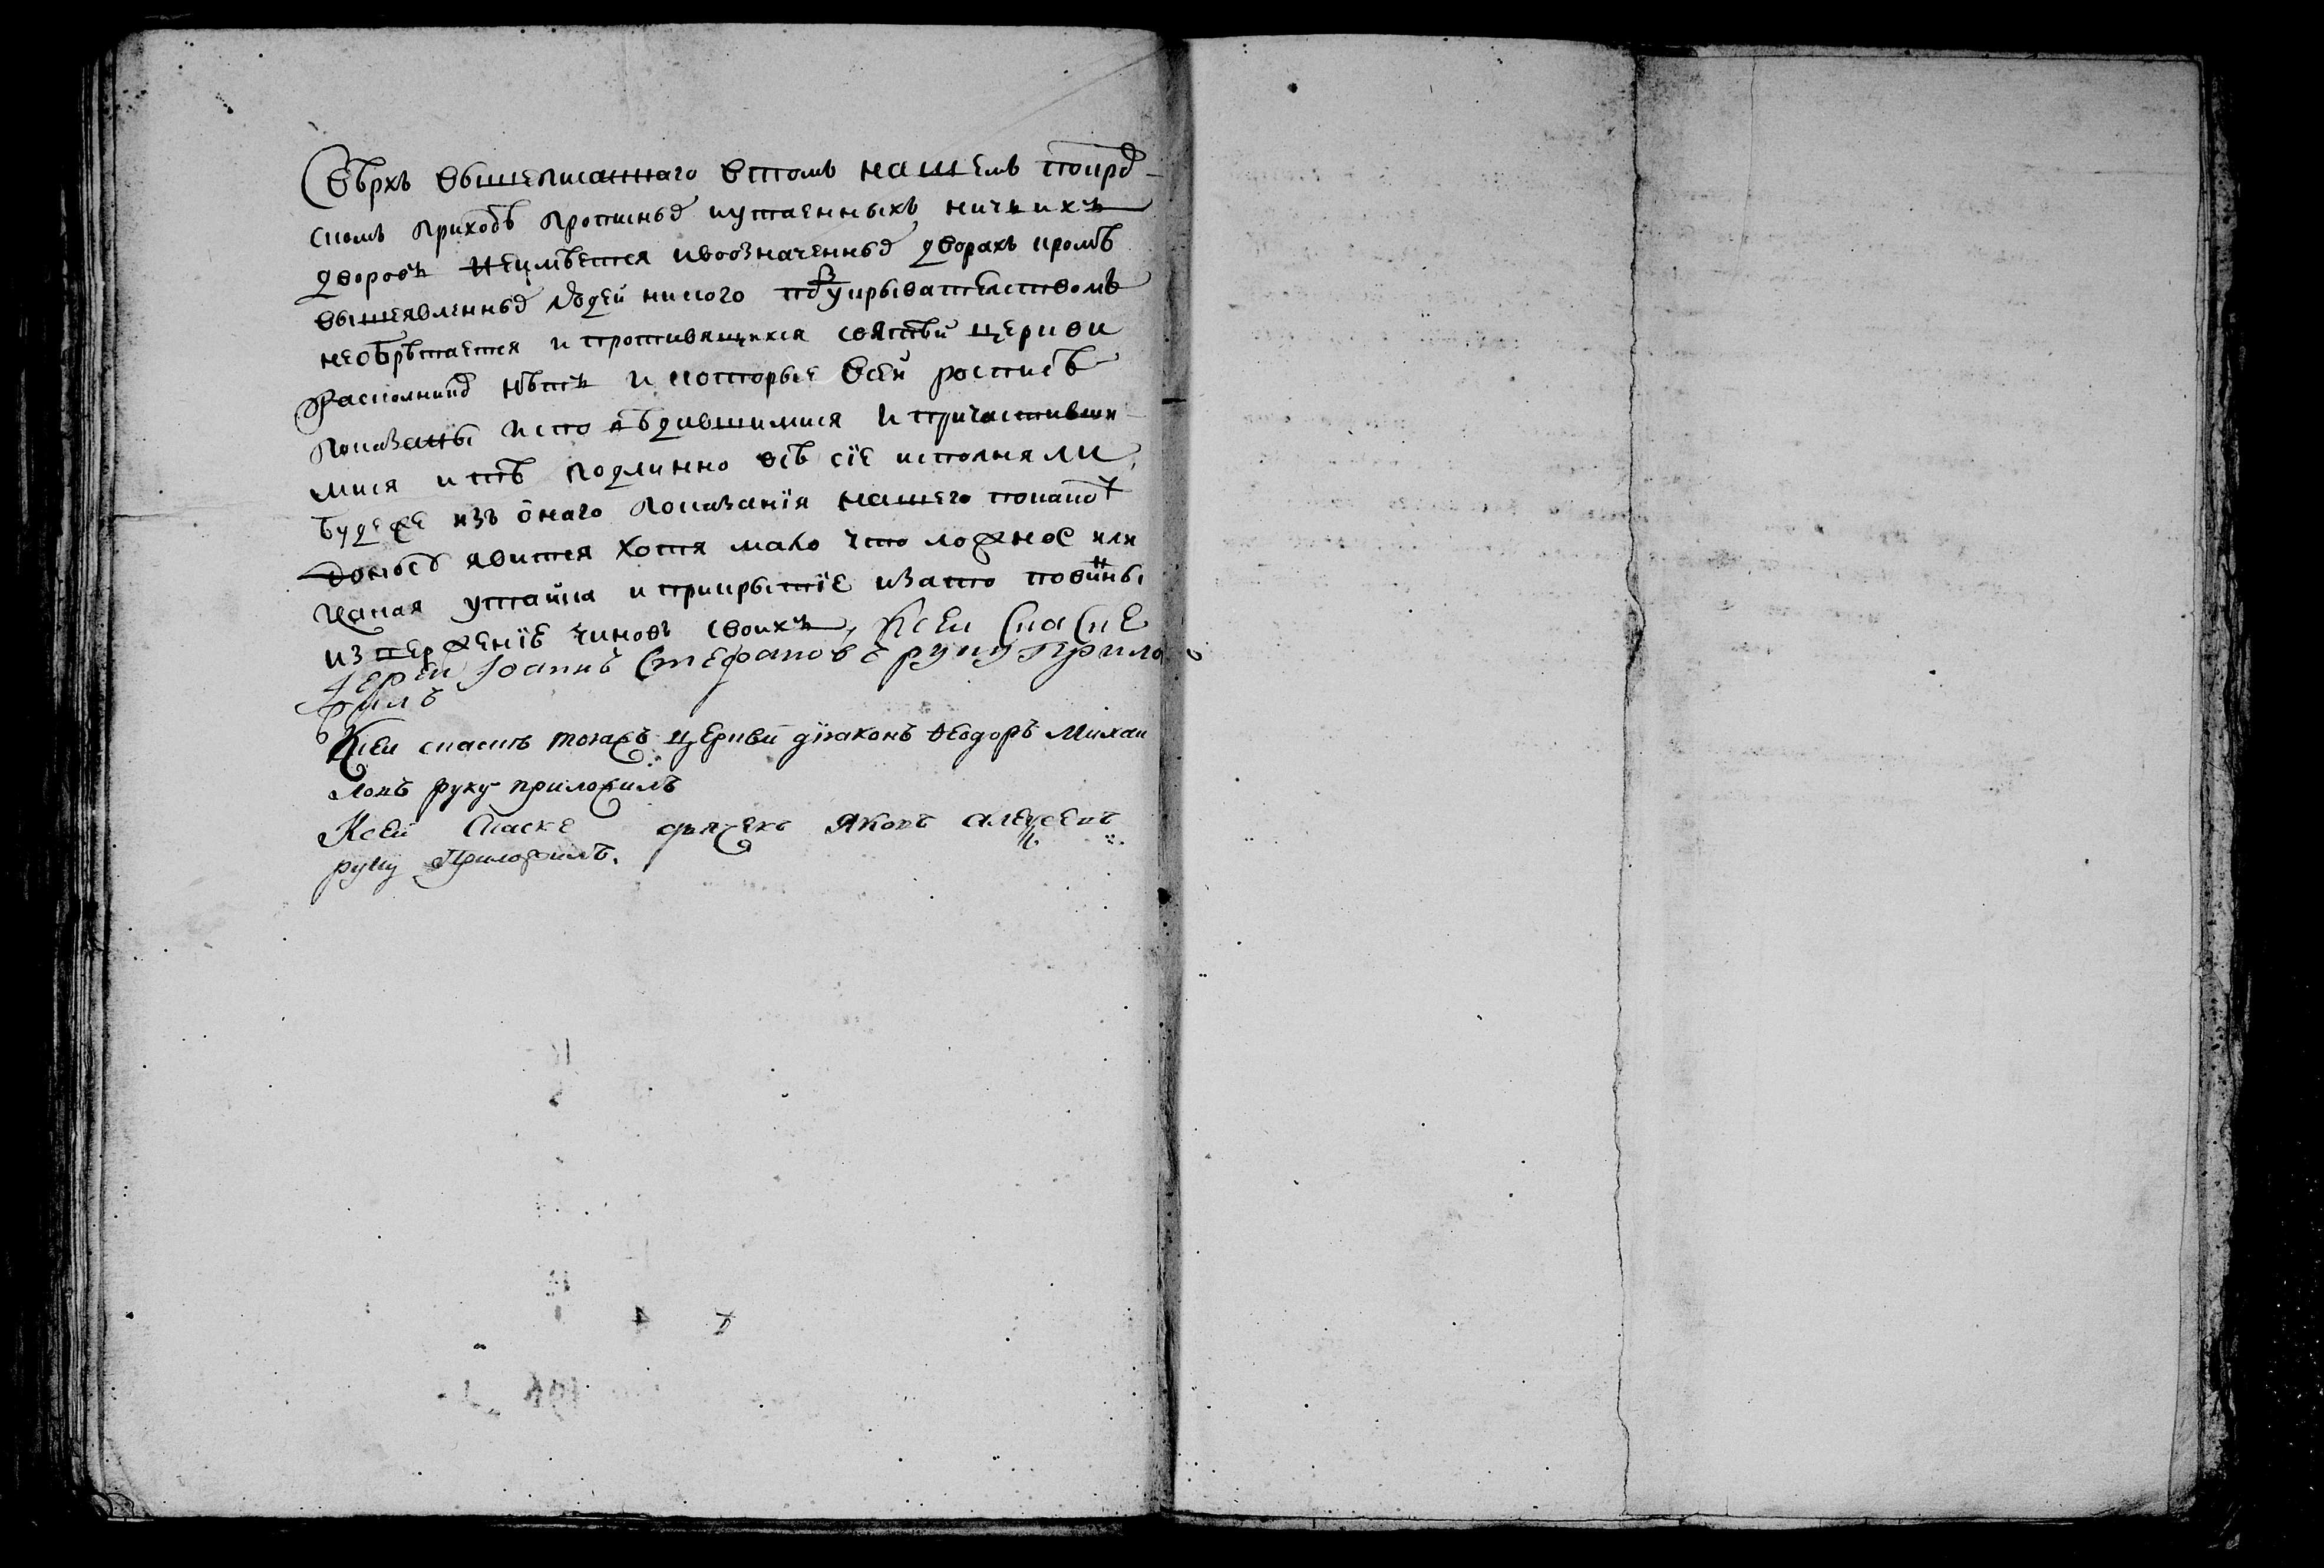 Свѣрхъ вышеписаннаго втомъ нашемъ покро
скомъ приходѣ протчихъ иутаенныхъ ничьихъ
дворовъ неимѣется ивоозначенныхъ дворахъ кромѣ
вышеявленныхъ людей никого подукрывателствомъ
необрѣтается и противящихся святѣй церкви
расколниковъ нѣтъ и которые всей росписѣ
показаны исповѣдавшимися и причастивши
мися и тѣ подлинно всѣ сїе исполняли
будеже изъ онаго показанїя нашего покакому
доносу явится хотя мало что ложное или
какая утайка и прикрытїе изато повинны
изверженїе чиновъ своихъ, Ксеи скаске
Иерей Иоаннъ Стефановъ руку прило
жилъ
Ксеи скаски тояжъ церкви дїаконъ Ѳеодоръ Михаи
ловъ руку приложилъ
Ксеи Скаске дьячекъ Яковъ алексеевъ
руку Приложилъ.